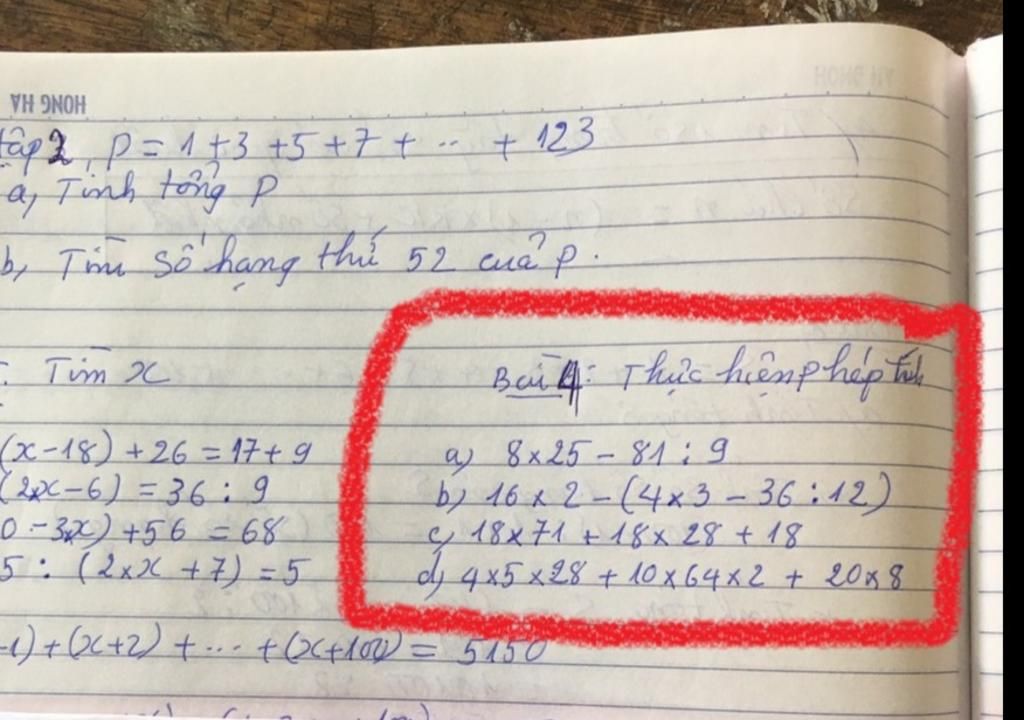 HONG HA
tập 2, P = 1 + 3 + 5 + 7 + ... + 123
a, Tính tổng P
b, Tìm số hạng thứ 52 của P.
Tìm x
(x - 18) + 26 = 17 + 9
(2xx - 6) = 36 : 9
0 - 3x) + 56 = 68
5 : (2xx + 7) = 5
-1) + (x+2) + ... + (x+100) = 5150
Bài 4: Thực hiện phép tính
a) 8 x 25 - 81 : 9
b) 16 x 2 - (4 x 3 - 36 : 12)
c, 18 x 71 + 18 x 28 + 18
d, 4 x 5 x 28 + 10 x 64 x 2 + 20 x 8